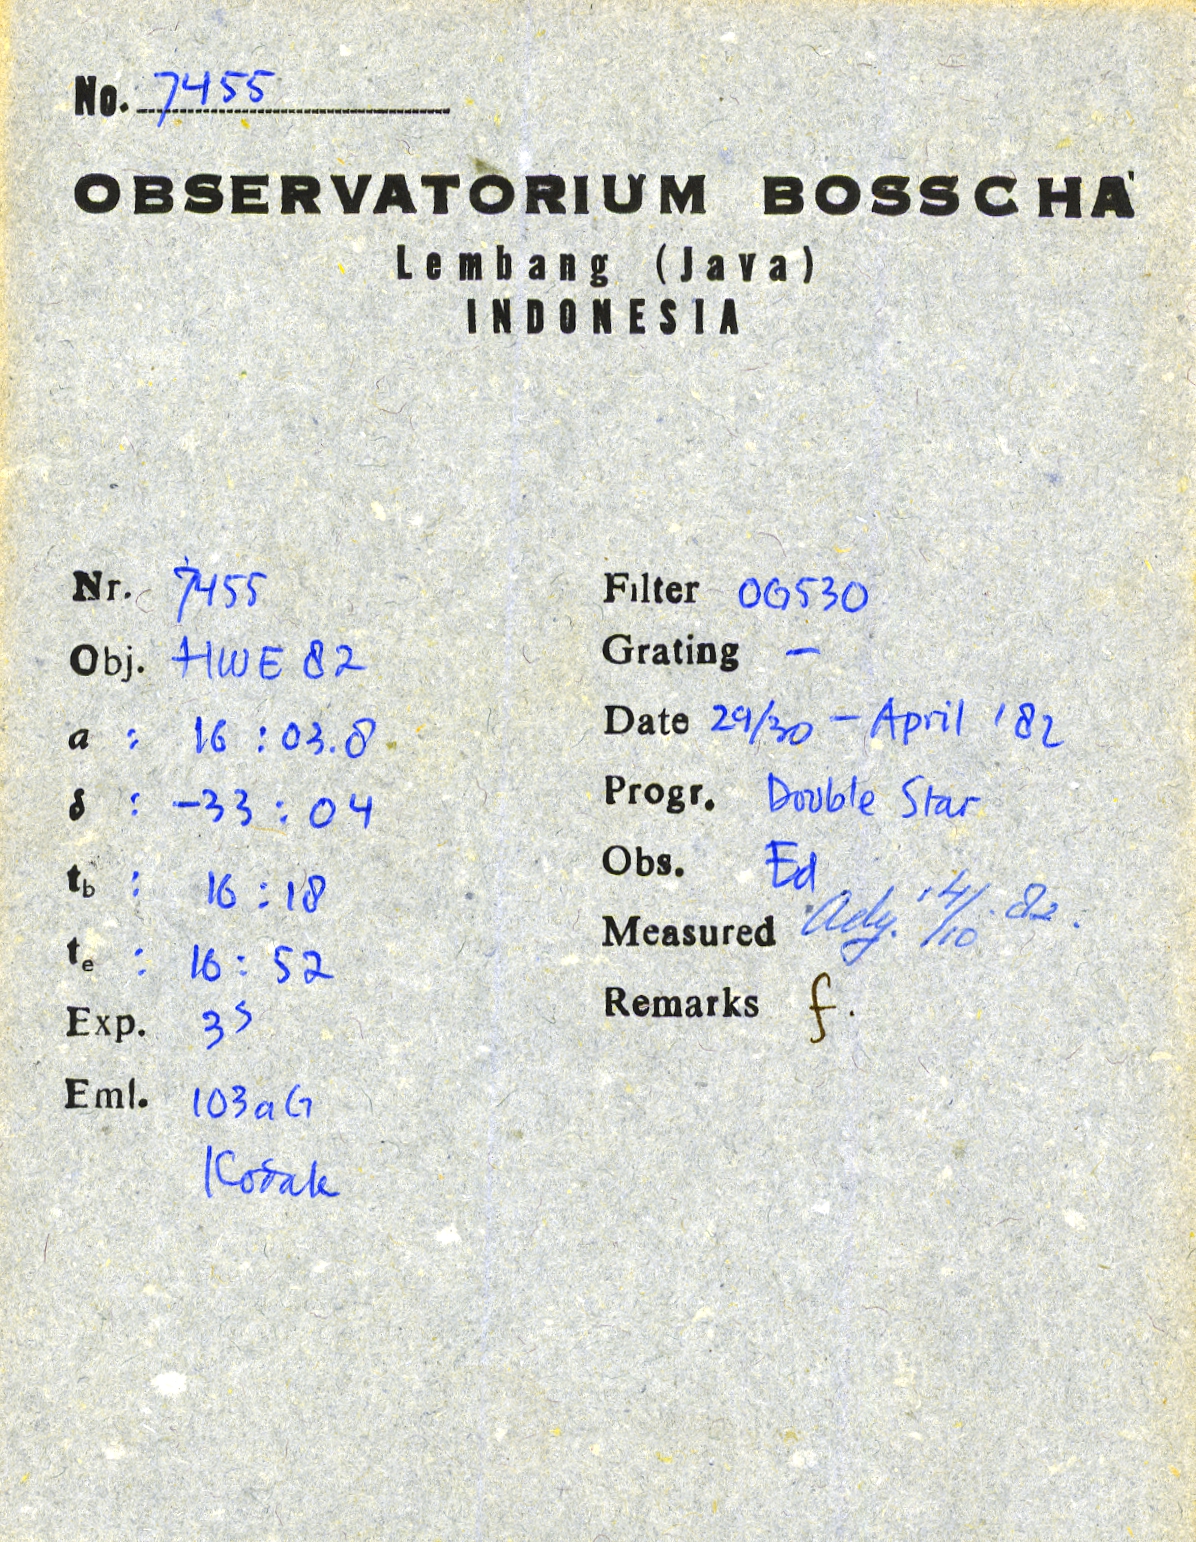 No. 7455
OBSERVATORIUM BOSSCHA
Lembang (Java)
INDONESIA
Nr. 7455
Obj. HWE 82
α : 16 : 03.8
δ : -33 : 04
tb : 16 : 18
te : 16 : 52
Exp. 3s
Eml. 103aG
Kodak
Filter OG530
Grating –
Date 29/30 – April '82
Progr. Double Star
Obs. Ed
Measured 14/10 82.
Remarks f.